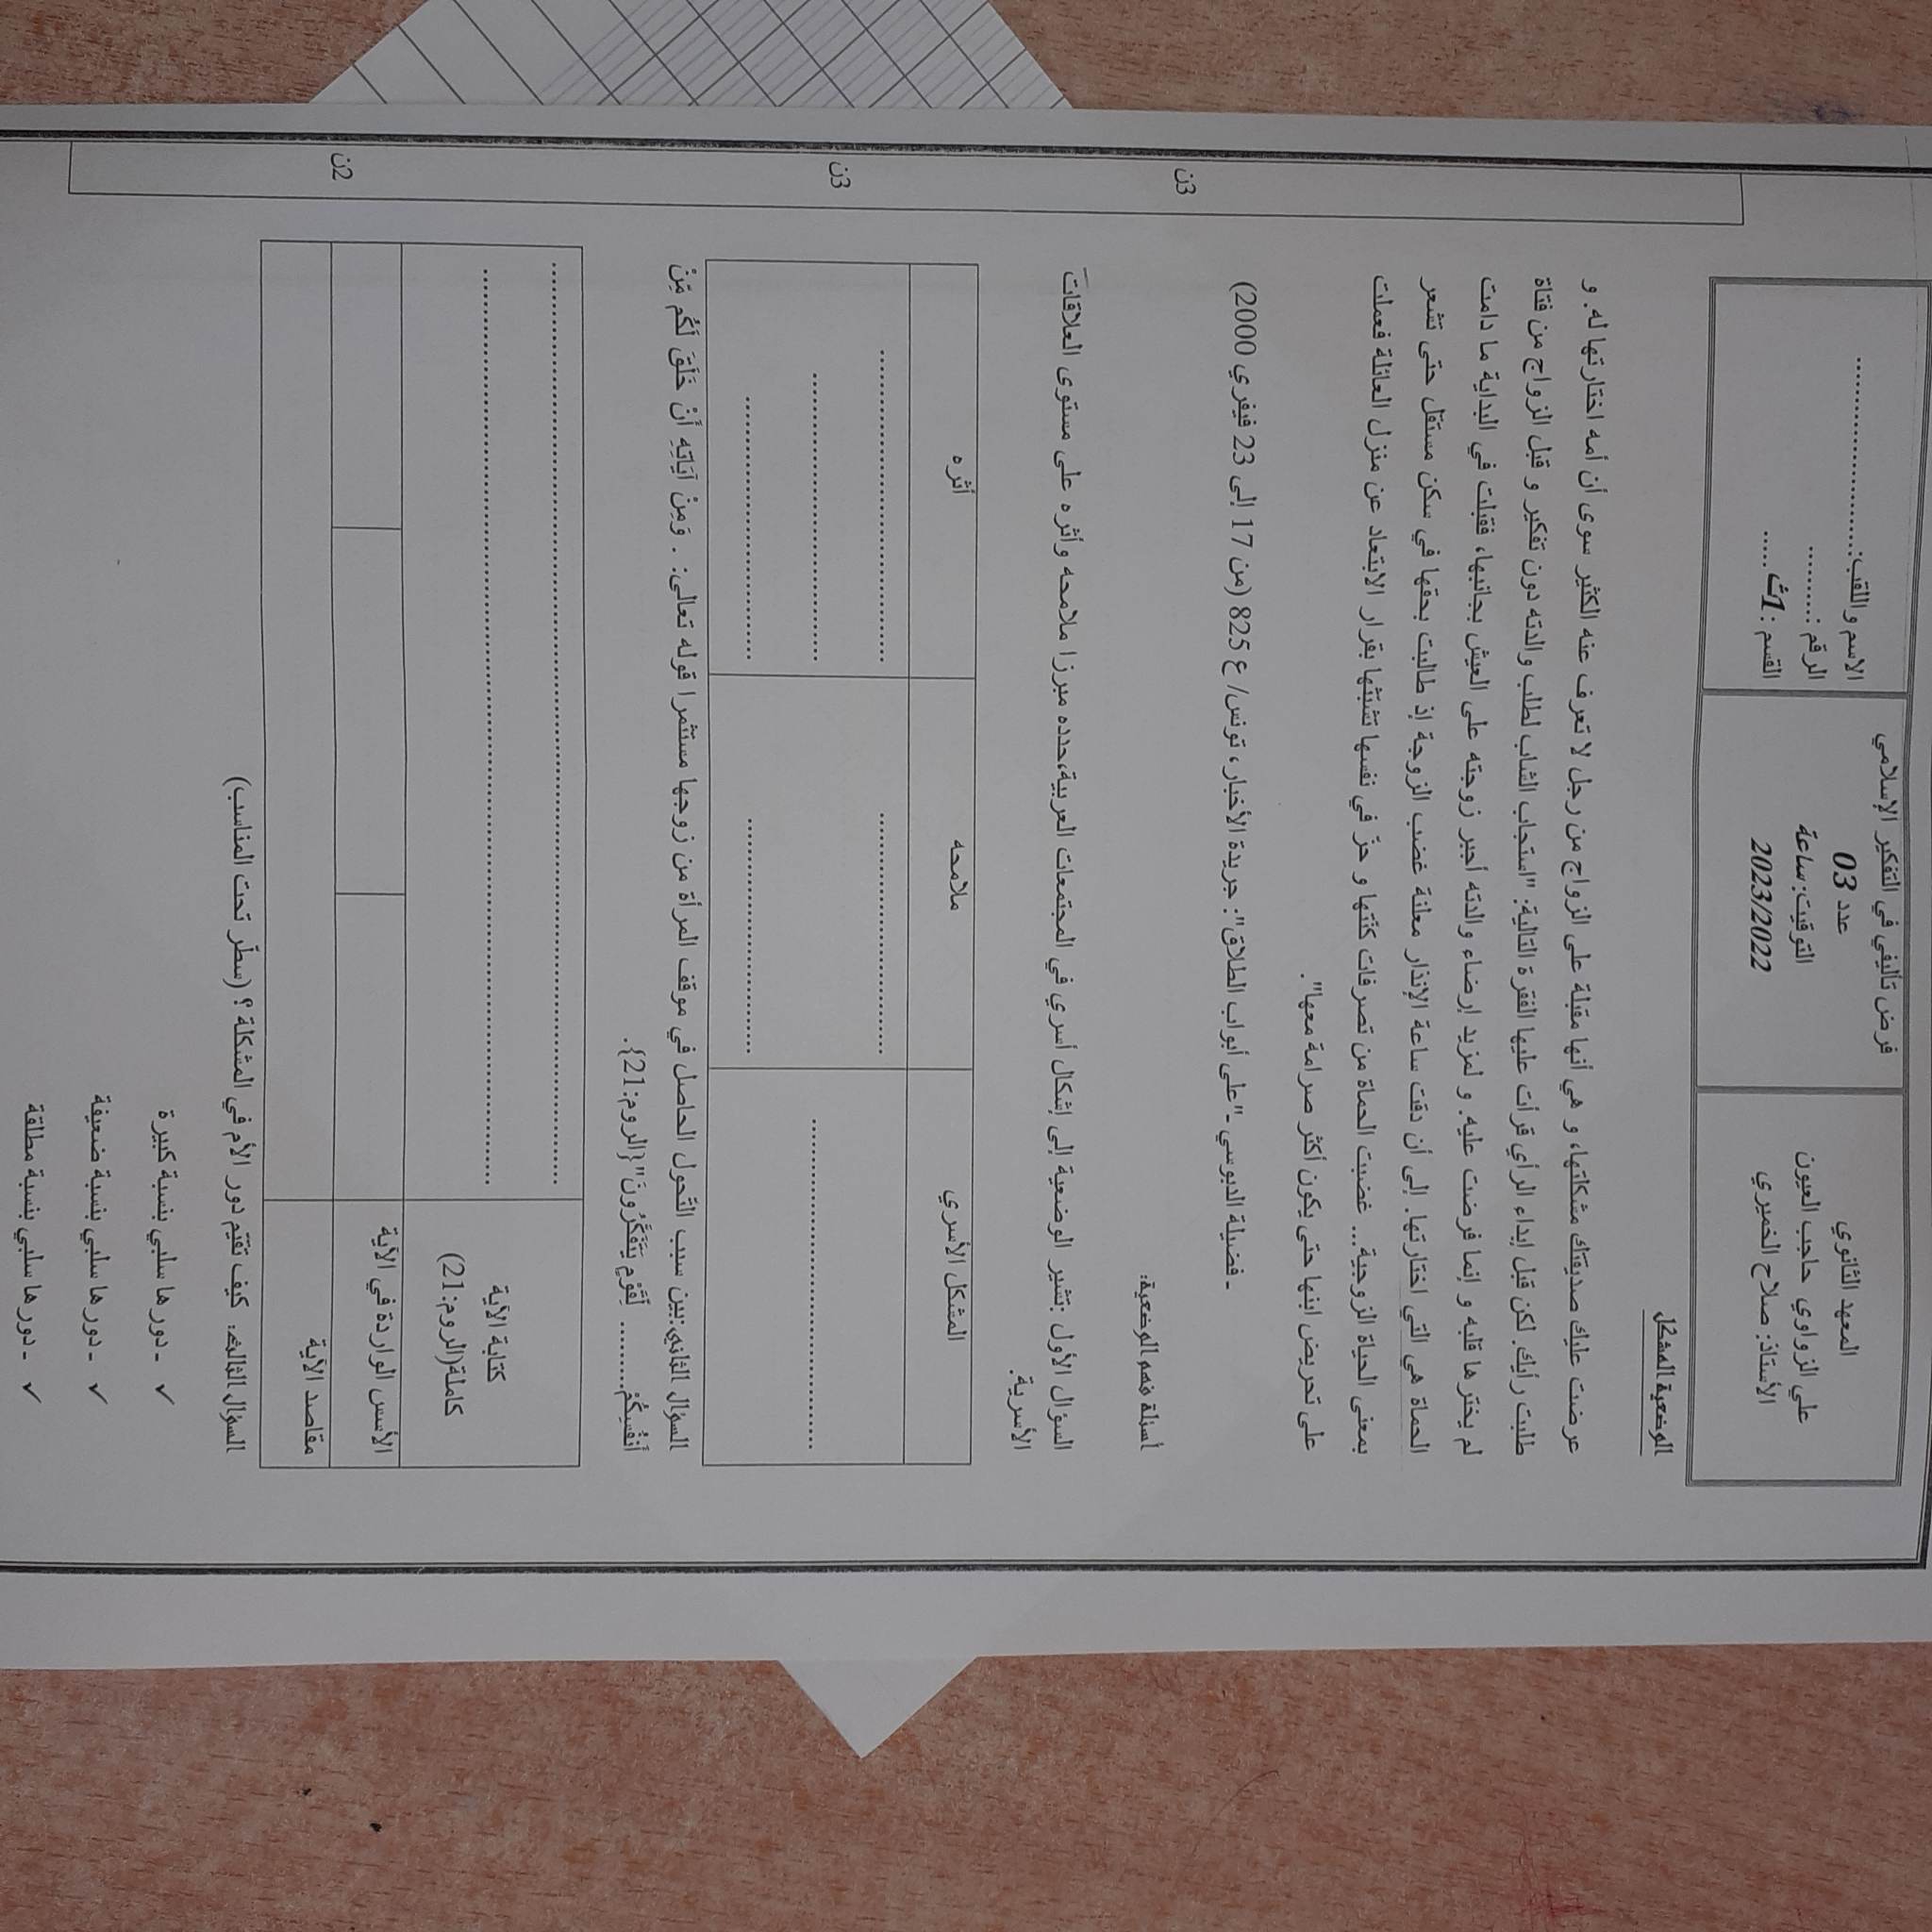 المعهد الثانوي
علي الزواوي حاجب العيون
الأستاذ: صلاح الخميري
فرض تأليفي في التفكير الإسلامي
عدد 03
التوقيت: ساعة
2023/2022
الاسم واللقب:........................
الرقم :..........
القسم : 1ث.....
الوضعية المشكل
عرضت عليك صديقتك مشكلتها، و هي أنها مقبلة على الزواج من رجل لا تعرف عنه الكثير سوى أن أمه اختارتها له. و
طلبت رأيك. لكن قبل إبداء الرأي قرأت عليها الفقرة التالية: "استجاب الشاب لطلب والدته دون تفكير و قبل الزواج من فتاة
لم يخترها قلبه و إنما فرضت عليه. و لمزيد إرضاء والدته أجبر زوجته على العيش بجانبها، فقبلت في البداية ما دامت
الحماة هي التي اختارتها. إلى أن دقت ساعة الإنذار معلنة غضب الزوجة إذ طالبت بحقها في سكن مستقل حتى تشعر
بمعنى الحياة الزوجية... غضبت الحماة من تصرفات كنّتها و حزّ في نفسها تشبّثها بقرار الابتعاد عن منزل العائلة فعملت
على تحريض ابنها حتى يكون أكثر صرامة معها".
- فضيلة الدبوسي -"على أبواب الطلاق": جريدة الأخبار، تونس/ ع 825 (من 17 إلى 23 فيفري 2000)
أسئلة فهم الوضعية:
3ن
السؤال الأول :تشير الوضعية إلى إشكال أسري في المجتمعات العربية،حدده مبرزا ملامحه وأثره على مستوى العلاقات
الأسرية.
المشكل الأسري
ملامحه
أثره
3ن
السؤال الثاني:بين سبب التّحول الحاصل في موقف المرأة من زوجها مستثمرا قوله تعالى: . وَمِنْ آيَاتِهِ أَنْ خَلَقَ لَكُم مِّنْ
أَنفُسِكُمْ......... لِّقَوْمٍ يَتَفَكَّرُونَ"{الروم:21}.
كتابة الآية
كاملة(الروم:21)
الأسس الواردة في الآية
مقاصد الآية
2ن
السؤال الثالث: كيف تقيّم دور الأم في المشكلة ؟ (سطّر تحت المناسب)
✓ - دورها سلبي بنسبة كبيرة
✓ - دورها سلبي بنسبة ضعيفة
✓ - دورها سلبي بنسبة مطلقة